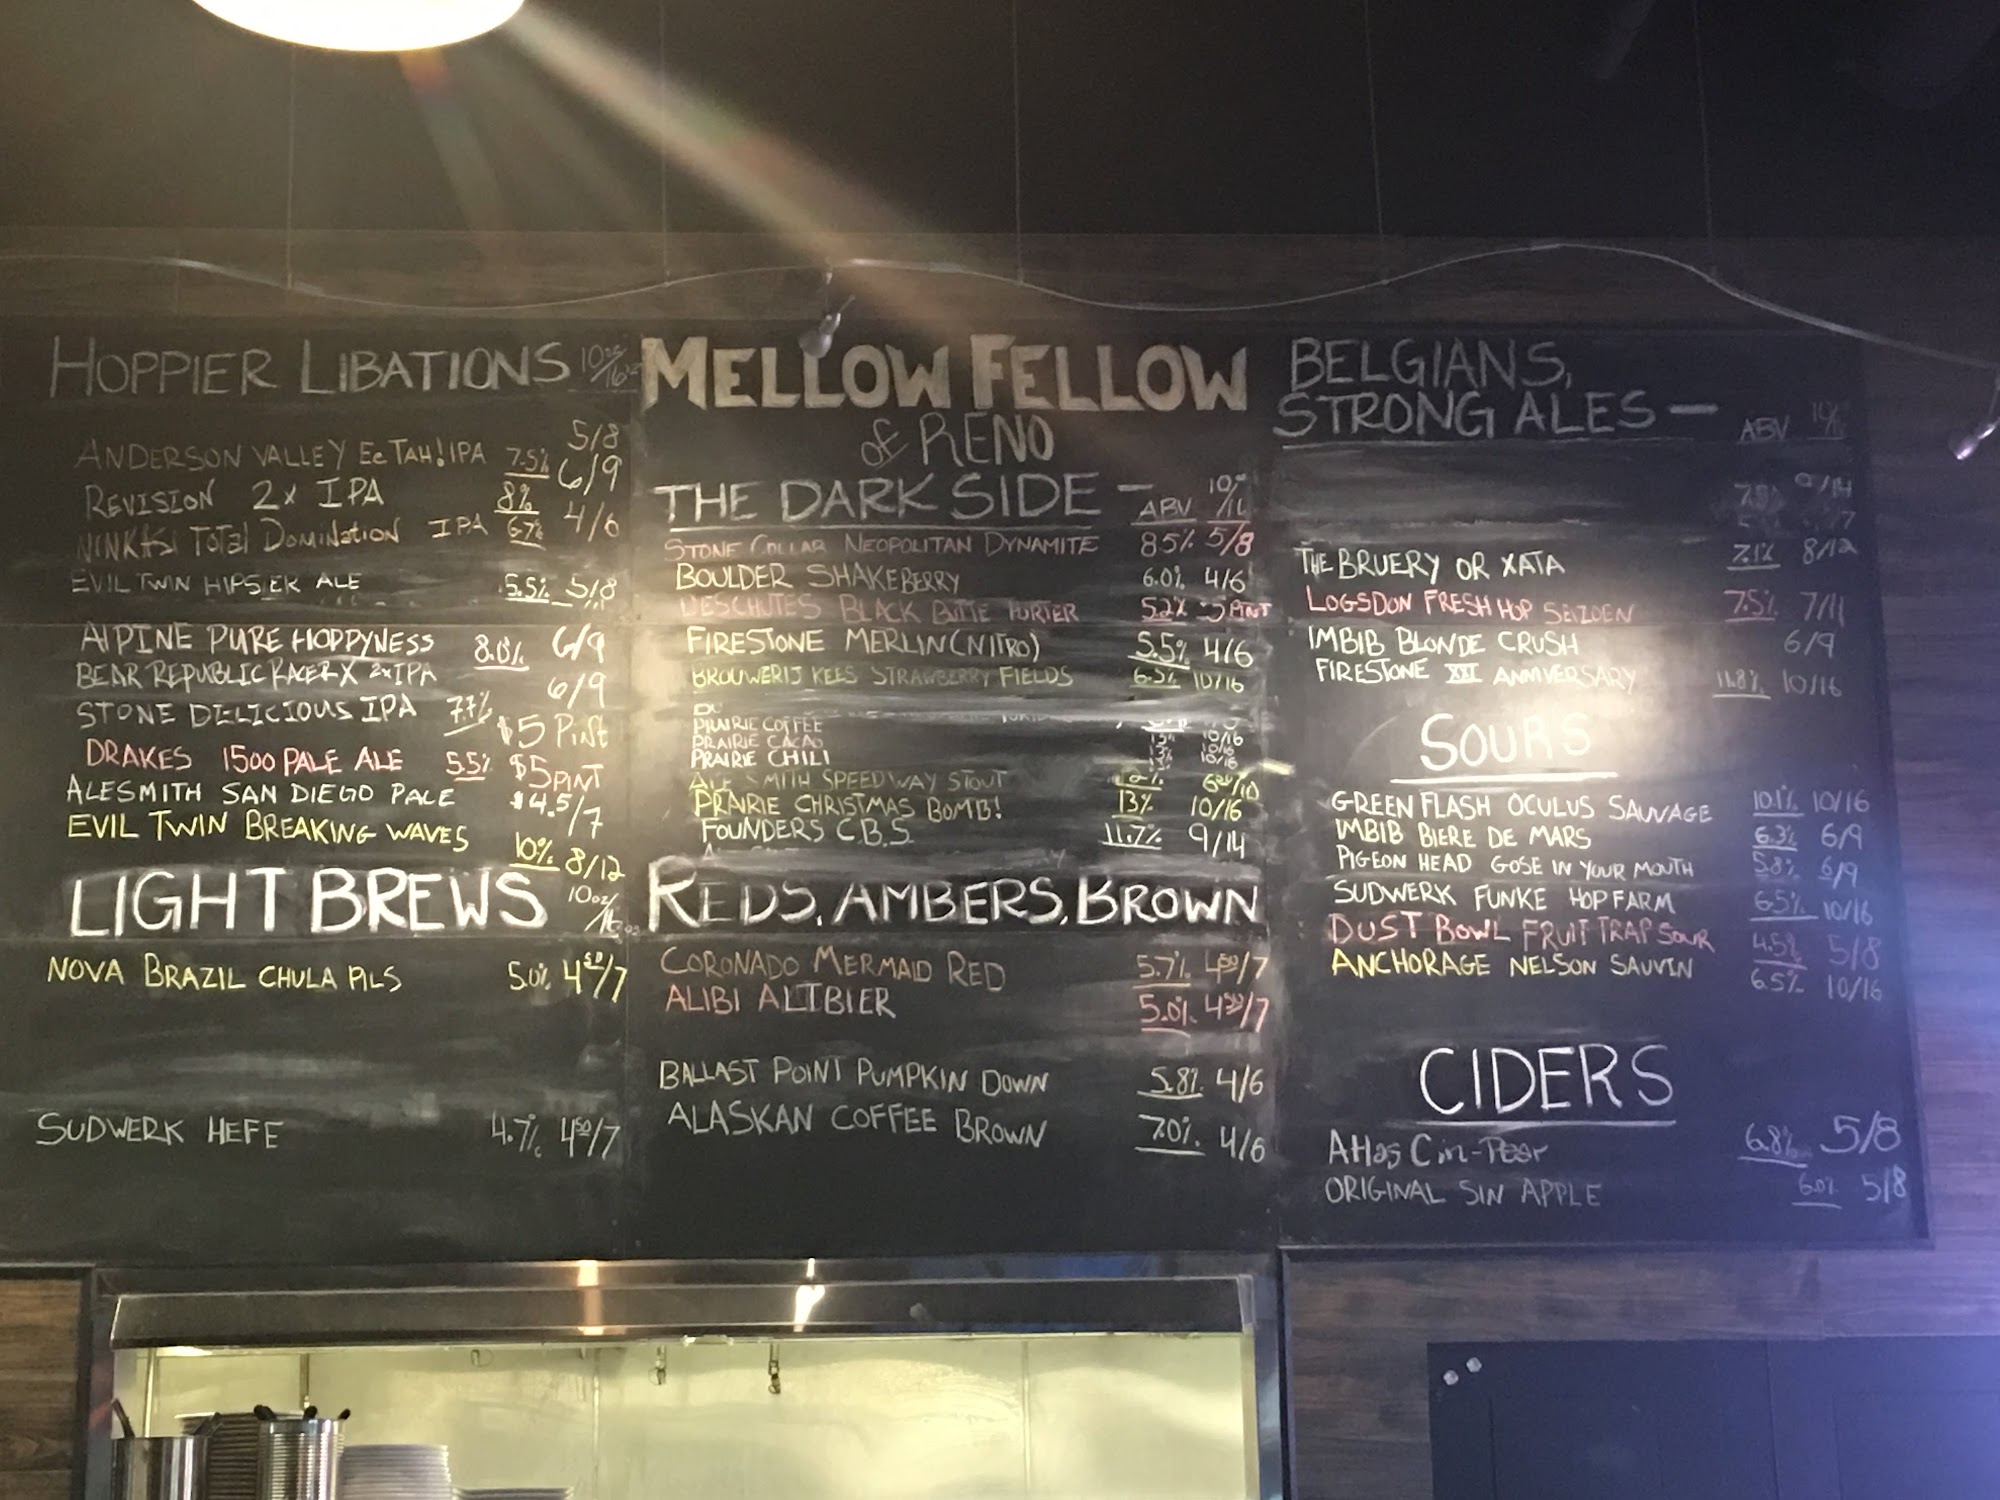 HOPPIER LIBATIONS
ANDERSON VALLEY Ee TAH! IPA 7.5% 5/8
REVISION 2x IPA 8% 6/9
NINKASI Total Domination IPA 6.7% 4/6
EVIL TWIN HIPSTER ALE 5.5% 5/8
ALPINE PURE HOPPYNESS 8.0% 6/9
BEAR REPUBLIC RACER X 2xIPA 6/9
STONE DELICIOUS IPA 7.7% $5 PINT
DRAKES 1500 PALE ALE 5.5% $5 PINT
ALESMITH SAN DIEGO PALE $4.5/7
EVIL TWIN BREAKING WAVES 10% 8/12
LIGHT BREWS 10oz/16oz
NOVA BRAZIL CHULA PILS 5.0% 4 50/7
SUDWERK HEFE 4.7% 4 50/7
MELLOW FELLOW
of RENO
THE DARK SIDE —
ABV
STONE COLLAB NEOPOLITAN DYNAMITE 8.5% 5/8
BOULDER SHAKEBERRY 6.0% 4/6
DESCHUTES BLACK BUTTE PORTER 5.2% 5 PINT
FIRESTONE MERLIN (NITRO) 5.5% 4/6
BROUWERIJ KEES STRAWBERRY FIELDS 6.5% 10/16
PRAIRIE COFFEE
PRAIRIE CACAO 13% 10/16
PRAIRIE CHILI 13% 10/16
ALE SMITH SPEEDWAY STOUT 12%
PRAIRIE CHRISTMAS BOMB! 13% 10/16
FOUNDERS C.B.S. 11.7% 9/14
REDS, AMBERS, BROWN
CORONADO MERMAID RED 5.7% 4 50/7
ALIBI ALTBIER 5.0% 4 50/7
BALLAST POINT PUMPKIN DOWN 5.8% 4/6
ALASKAN COFFEE BROWN 7.0% 4/6
BELGIANS,
STRONG ALES —
ABV
THE BRUERY OR XATA 7.1% 8/12
LOGSDON FRESH HOP SEIZOEN 7.5% 7/11
IMBIB BLONDE CRUSH 6/9
FIRESTONE XXI ANNIVERSARY 11.8% 10/16
SOURS
GREEN FLASH OCULUS SAUVAGE 10.1% 10/16
IMBIB BIERE DE MARS 6.3% 6/9
PIGEON HEAD GOSE IN YOUR MOUTH 5.8% 6/9
SUDWERK FUNKE HOP FARM 6.5% 10/16
DUST BOWL FRUIT TRAP SOUR 4.5% 5/8
ANCHORAGE NELSON SAUVIN 6.5% 10/16
CIDERS
Atlas Cin-Pear 6.8% 5/8
ORIGINAL SIN APPLE 6.0% 5/8